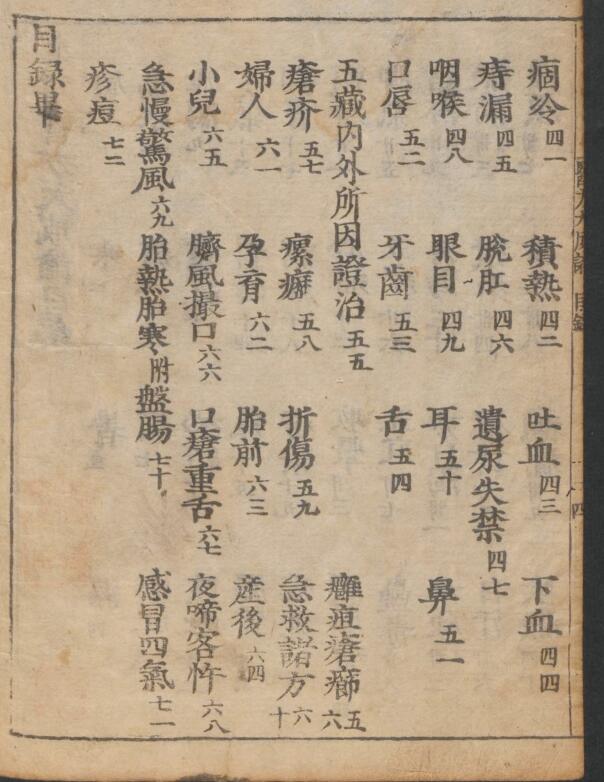 痼冷四一 積熱四二 吐血四三 下血四四
痔漏四五 脫肛四六 遺尿失禁四七
咽喉四八 眼目四九 耳五十 鼻五一
口唇五二 牙齒五三 舌五四
五藏內外所因證治五五 癰疽瘡癤五六
瘡疥五七 瘰癧五八 折傷五九 急救諸方六十
婦人六一 孕育六二 胎前六三 產後六四
小兒六五 臍風撮口六六 口瘡重舌六七 夜啼客忤六八
急慢驚風六九 胎熱胎寒附盤腸七十 感冒四氣七一
疹痘七二
目錄畢